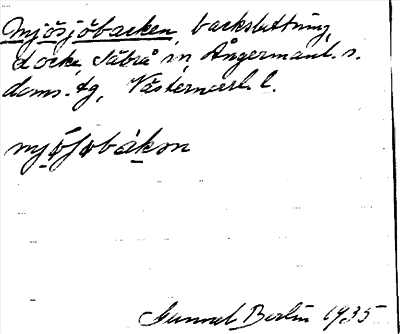 Mjösjöbacken, backsluttning,
docke, Säbrå sn, Ångermanl. s.
doms. tg, Västernorrl. l.
mjö̀ʃøbákən
Gunnel Berlin 1935